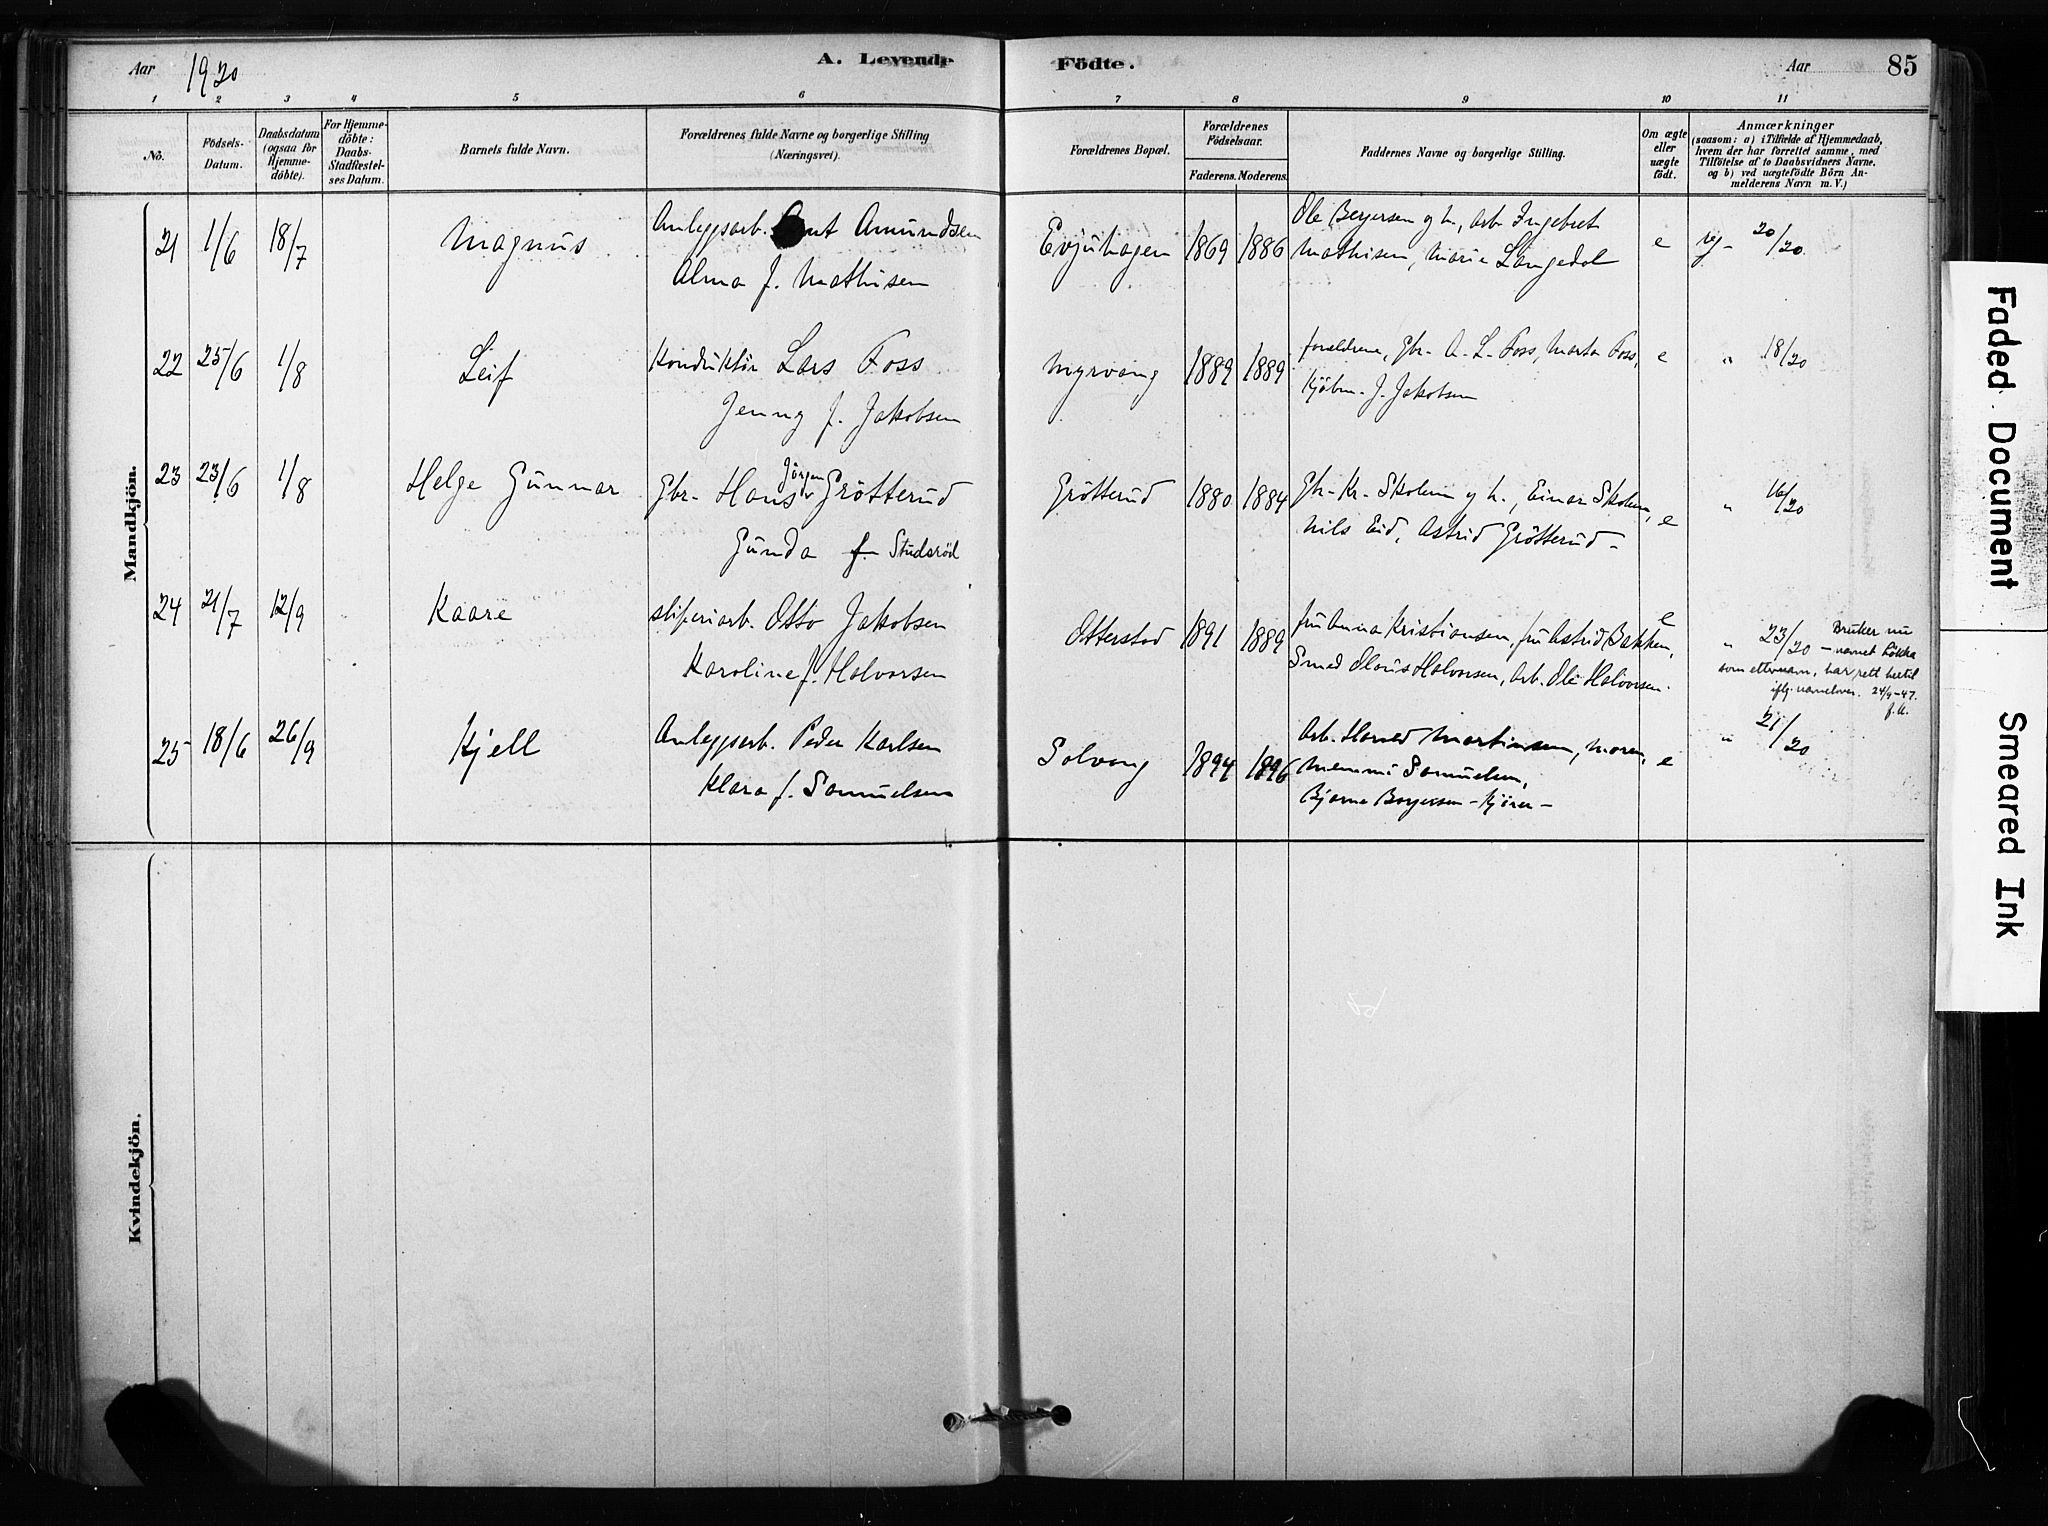 Aar 1920 A. Levende Födte. Aar 85
1 2 3 4 5 6 7 8 9 10 11
No.
Födsels-Datum.
Daabsdatum (ogsaa for Hjemme-döbte).
For Hjemme-döbte: Daabs-Stadfæstel-ses Datum.
Barnets fulde Navn.
Forældrenes fulde Navne og borgerlige Stilling
(Næringsvei).
Forældrenes Bopæl.
Forældrenes Födselsaar.
Faderens. Moderens.
Faddernes Navne og borgerlige Stilling.
Om ægte eller uægte födt.
Anmærkninger
(saasom: a) i Tilfælde af Hjemmedaab,
hvem der har forrettet samme, med
Tilföielse af to Daabsvidners Navne.
og b) ved uægtefödte Börn An-
melderens Navn m. V.)
Mandkjön.
21 1/6 18/7 Magnus Anleggsarb. Amundsen
Alma f. Mathisen
Evjuhagen 1869 1886
Ole Bergersen og h., Arb. Ingebret
Mathisen, Marie Langedal
e 20/20
22 25/6 1/8 Leif Konduktör Lars Foss
Jenny f. Jakobsen
Myrvang 1889 1889
foreldrene, Gbr. A. L. Foss, Marta Foss,
Kjöbm. J. Jakobsen
e " 18/20
23 23/6 1/8 Helge Gunnar Gbr. Hans Jörgen Grötterud
Gunda f. Studsröd
Grötterud 1880 1884
Gbr. Kr. Skolem og h., Einar Skolem,
Nils Eid, Astrid Grötterud
e " 16/20
24 21/7 12/9 Kaare sliperiarb. Otto Jakobsen
Karoline f. Halvorsen
Otterstad 1891 1889
fru Anna Kristiansen, fru Astrid Bakken,
Smed Halvorsen, Arb. Ole Halvorsen.
e " 23/20 Bruker nu
navnet Lökka
som etternavn, har rett hertil
iflg. navneloven. 24/9-47.
25 18/6 26/9 Kjell Anleggsarb. Peder Karlsen
Klara f. Samuelsen
Solvang 1894 1896
Arb. Harald Martinsen, moren,
Memmi Samuelsen,
Bjarne Borgersen - Kjörer -
e " 21/20
Kvindekjön.
Faded Document
Smeared Ink